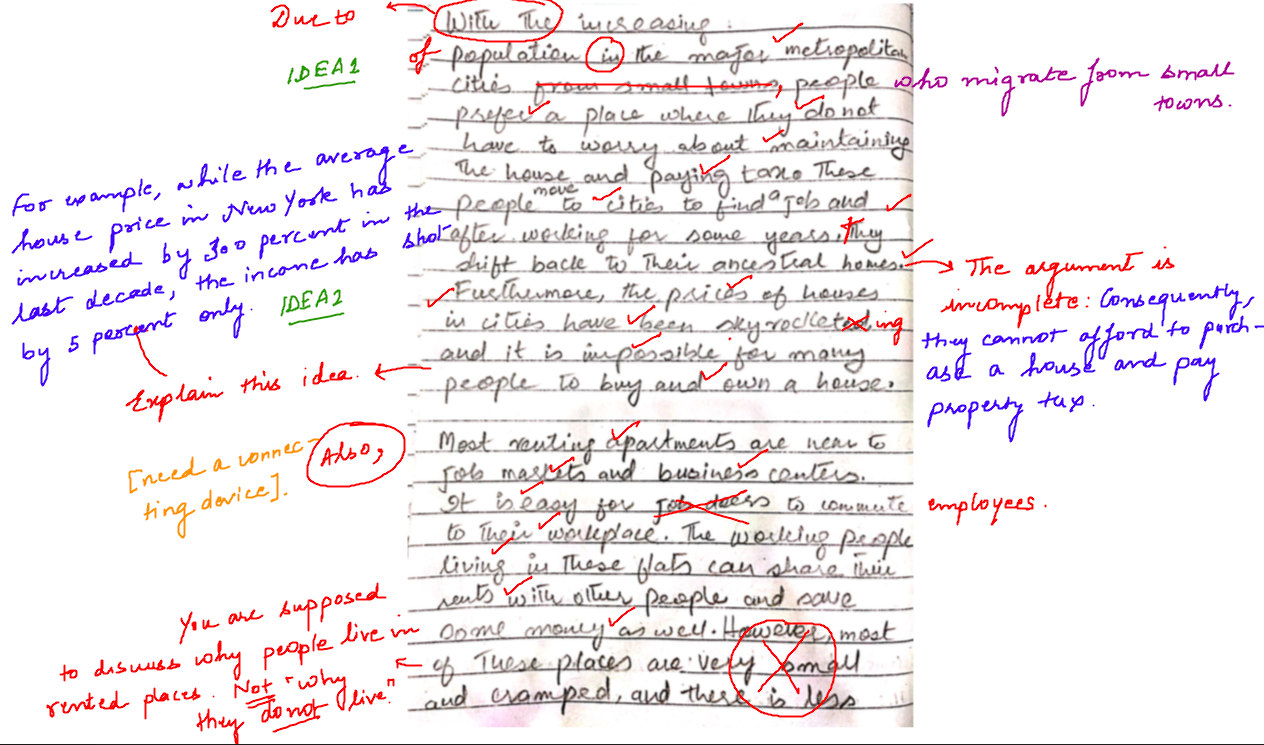 Due to
With the increasing
of population in the major metropolitan
IDEA1
cities from small towns, people who migrate from small towns.
prefer a place where they do not
have to worry about maintaining
the house and paying taxes These
people move to cities to find a job and
after working for some years. They
shift back to their ancestral homes.
For example, while the average
house price in New York has
increased by 300 percent in the
last decade, the income has shot
by 5 percent only.
IDEA2
The argument is
incomplete: Consequently,
they cannot afford to purch-
ase a house and pay
property tax.
Furthermore, the prices of houses
in cities have been skyrocketed ing
and it is impossible for many
people to buy and own a house.
Explain this idea.
[need a connec-
ting device].
Also,
Most renting apartments are near to
job markets and business centers.
It is easy for job doers to commute employees.
to their workplace. The working people
living in these flats can share their
rents with other people and save
some money as well. However, most
of These places are very small
and cramped, and there is less
You are supposed
to discuss why people live in
rented places. Not "why
they do not live."